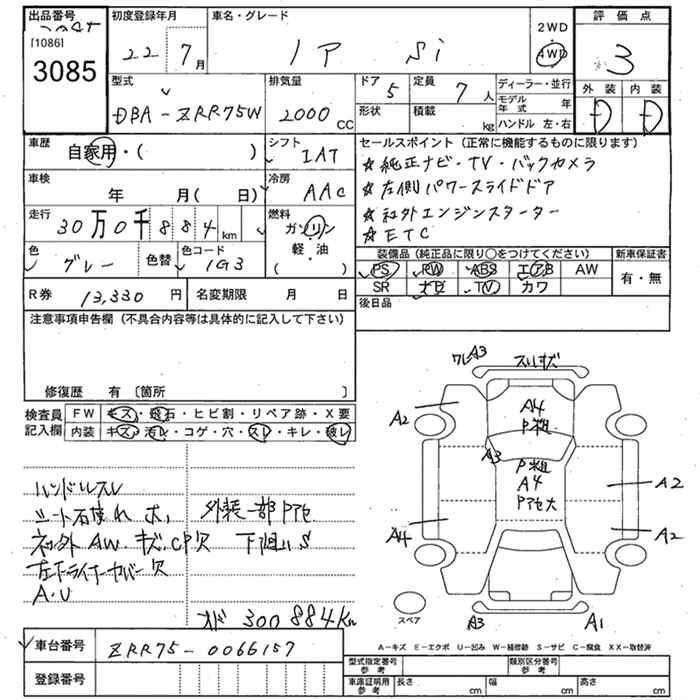 出品番号
[1086]
3085
初度登録年月
22年7月
車名・グレード
ノア Si
2WD
4WD
評価点
3
外装 内装
D D
型式
DBA-ZRR75W
排気量
2000 CC
ドア 5
定員 7人
形状
積載 kg
ディーラー・並行
モデル年式 年
ハンドル 左・右
車歴
自家用・( )
シフト
IAT
車検
年 月( 日)
冷房
AAC
走行
30万0千884km
燃料
ガソリン
軽・油
( )
色
グレー
色替
色コード
1G3
R券 13,330円
名変期限 月 日
セールスポイント (正常に機能するものに限ります)
☆純正ナビ・TV・バックカメラ
☆左側パワースライドドア
☆社外エンジンスターター
☆ETC
装備品 (純正品に限り○をつけてください)
PS PW ABS エアB AW
SR ナビ TV カワ
新車保証書
有・無
後日品
注意事項申告欄 (不具合内容等は具体的に記入して下さい)
修復歴 有 〔箇所 〕
検査員記入欄
FW キズ・飛石・ヒビ割・リペア跡・X要
内装 キズ・汚レ・コゲ・穴・スレ・キレ・破レ
ハンドルスレ
シート
外装一部Pアセ
社外AW・キズ・CP欠
下廻りS
左下ライナーカバー欠
A.U
メーター 300884km
ワレA3
スリキズ
A2
A4
P粗
A3
P粗
A4
Pアセ大
A2
A4
A2
スペア
A3
A1
A-キズ E-エクボ U-凹み W-補修跡 S-サビ C-腐食 XX-取替済
車台番号 ZRR75-0066157
登録番号
型式指定番号 参考
類別区分番号 参考
車庫証明用 参考
長さ cm
幅 cm
高さ cm